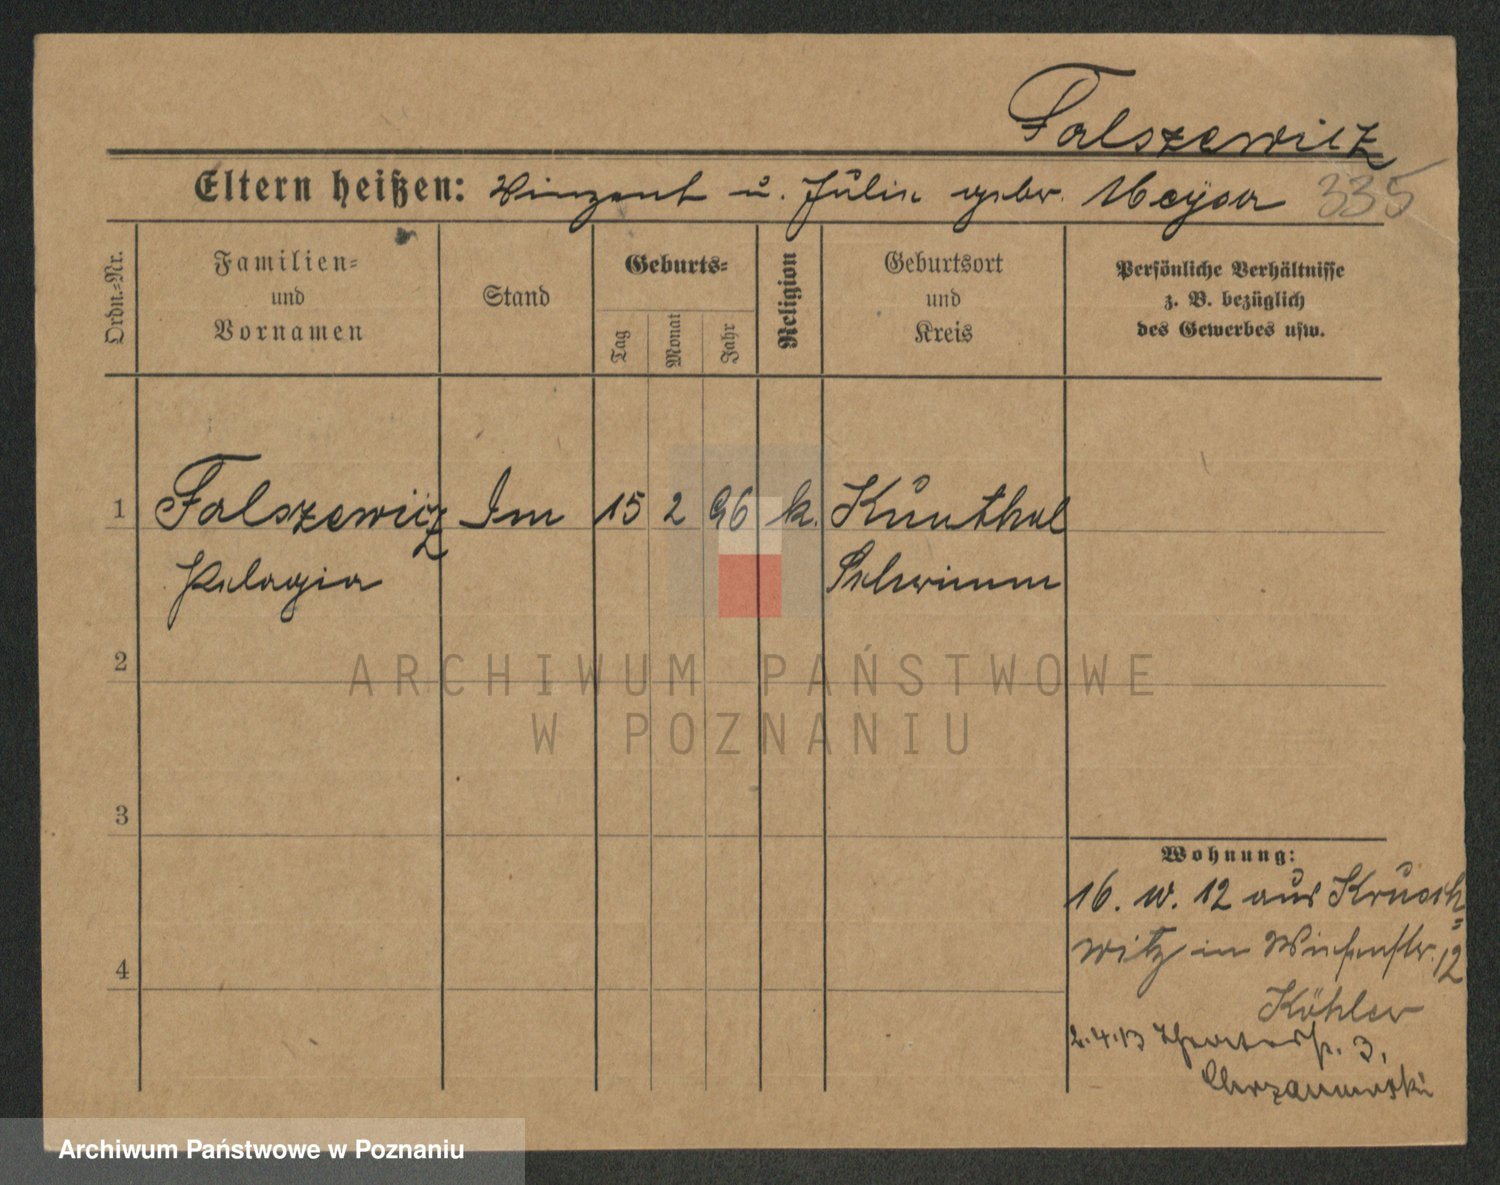 Falszewicz
Eltern heißen: Vinzent u. Julie gebr. Meyer 335
Ordn.-Nr.
Familien- und Vornamen
Stand
Geburts-
Tag
Monat
Jahr
Religion
Geburtsort und Kreis
Persönliche Verhältnisse z. B. bezüglich des Gewerbes usw.
1 Falszewicz 15 2 96 k. Kunthal
Pelagia Schrimm
2
3
4
Wohnung:
16. 12 aus Krusch=
witz in Wiesenstr. 12
Köhler
2.4.13 3.
Chrzanowski
ARCHIWUM PAŃSTWOWE
W POZNANIU
Archiwum Państwowe w Poznaniu